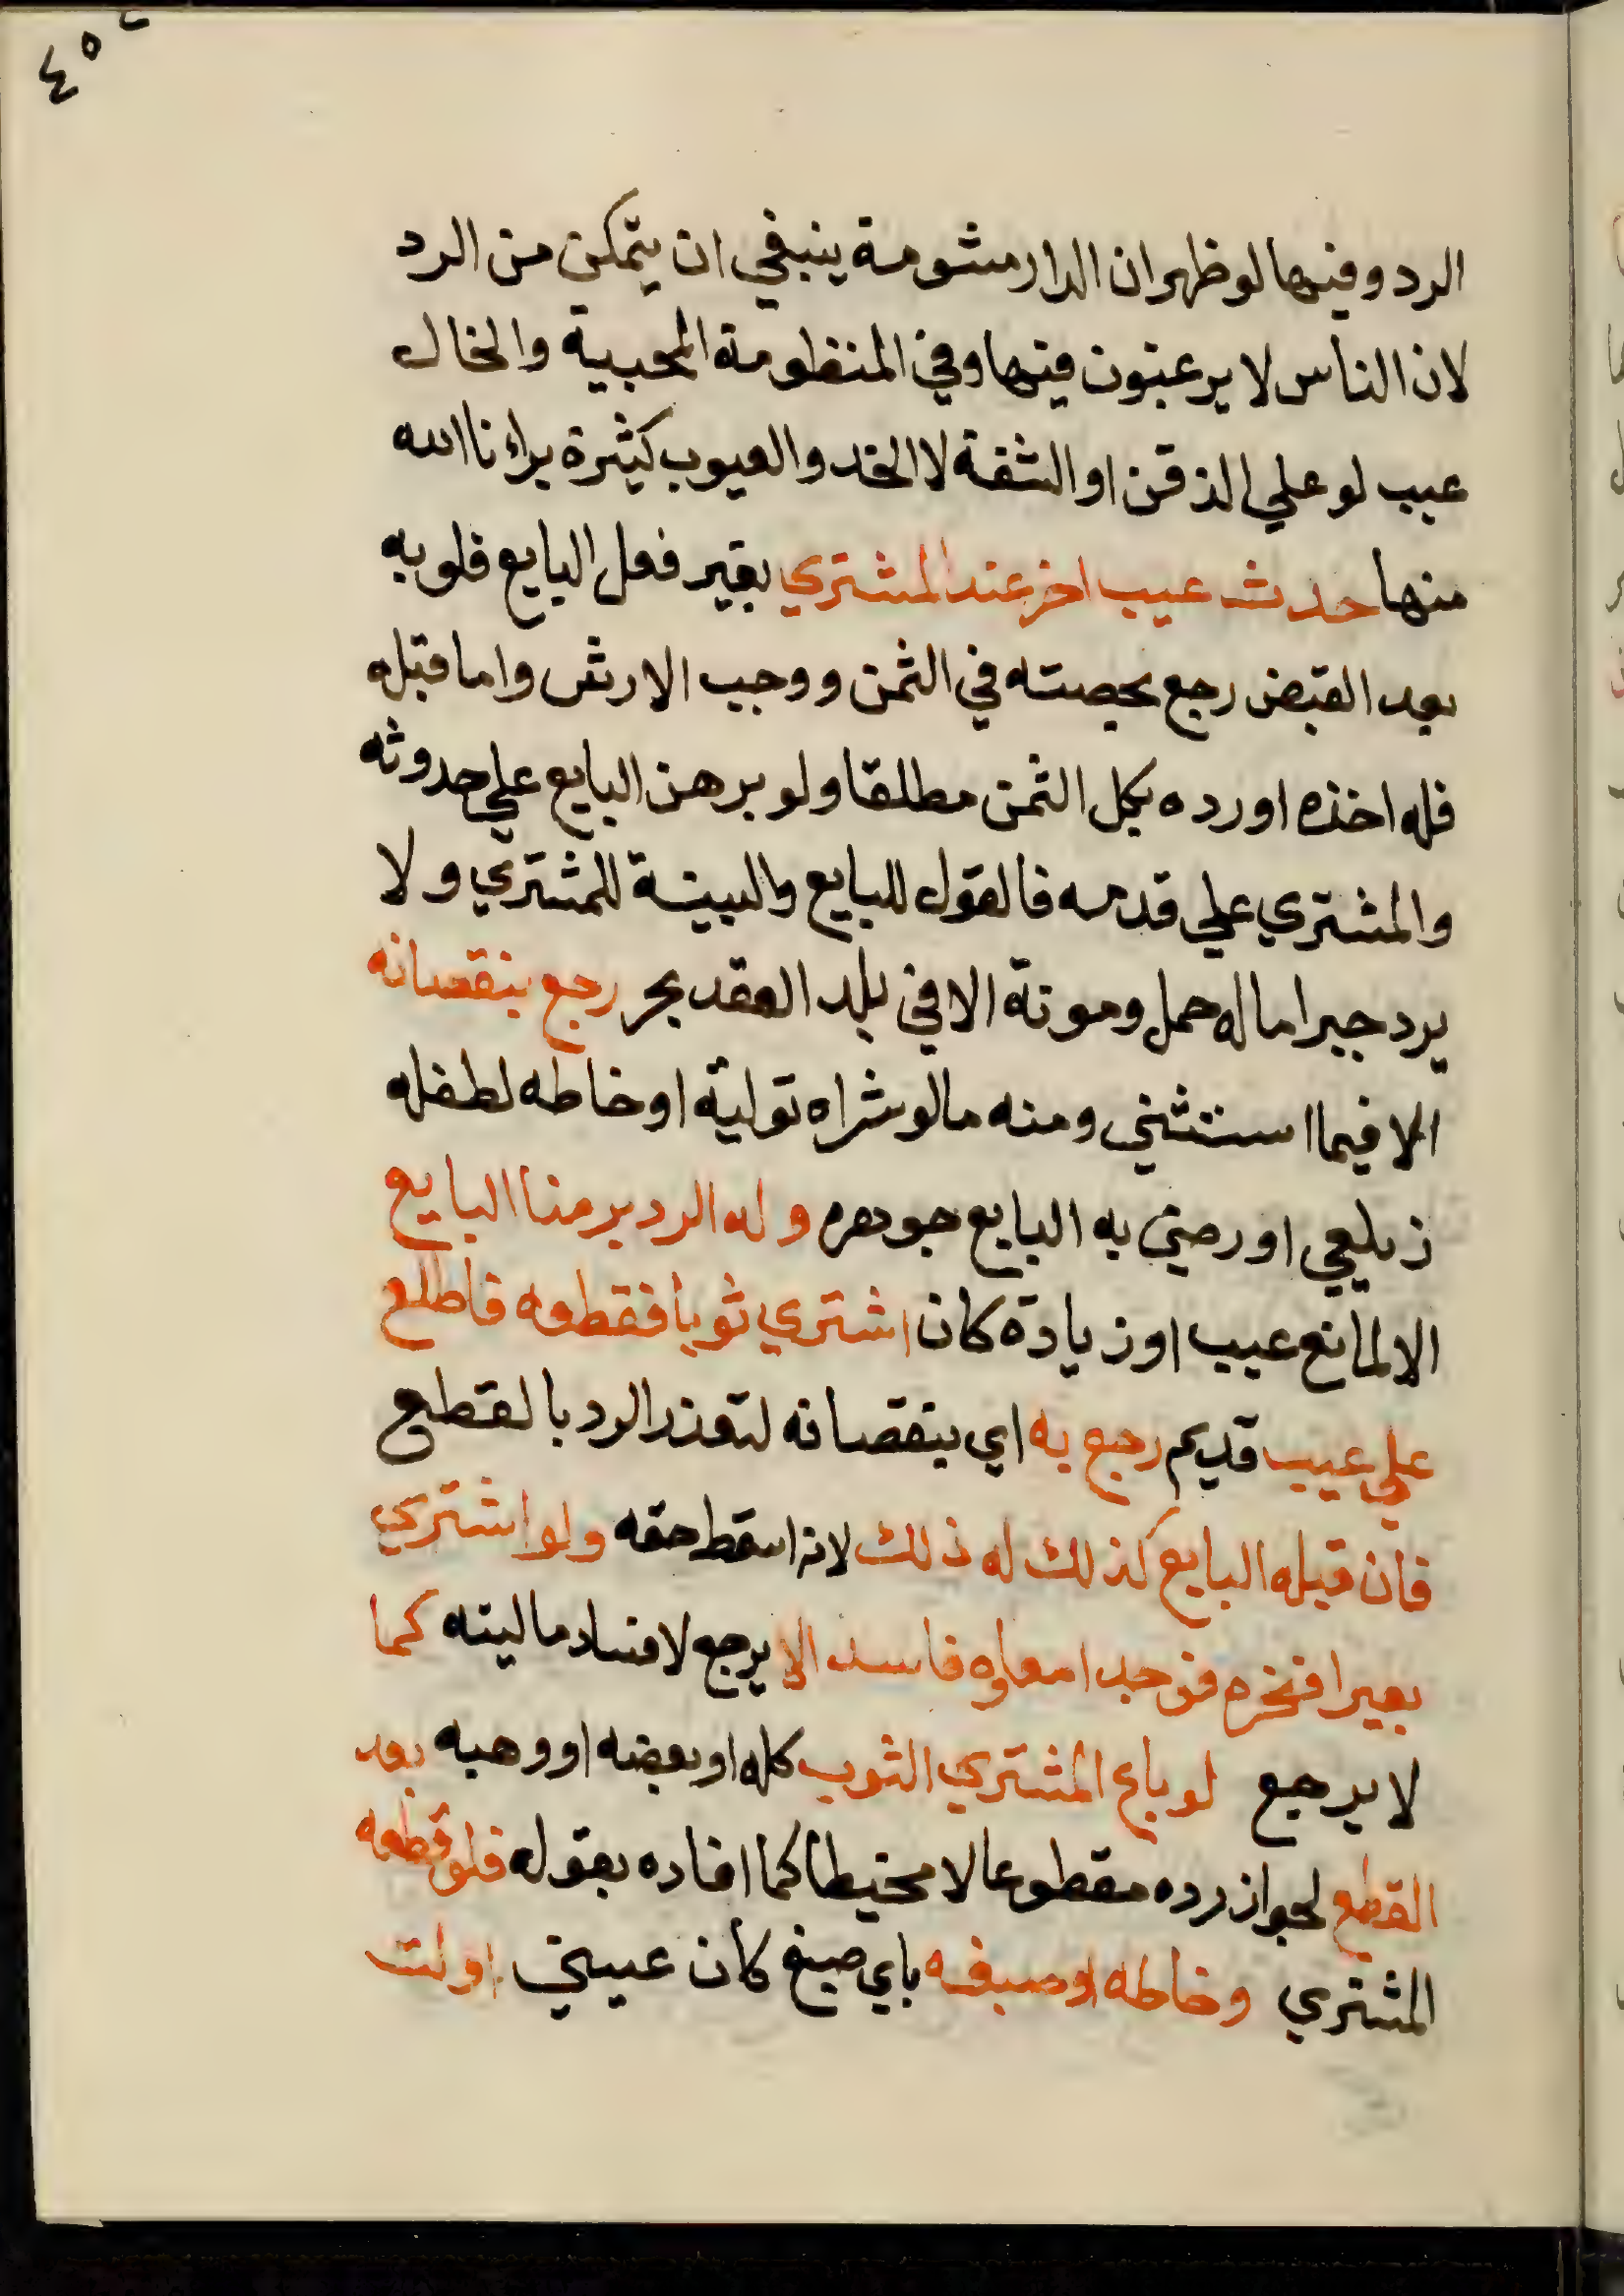 ٤٥٢
الرد وفيها لو ظهر ان الدار مشومة ينبغي ان يتمكن من الرد
لان الناس لا يرغبون فيها وفي المنظومة المحبية والخال
عيب لو علي الذقن او الشفة لا الخد والعيوب كثيرة براءنا الله
منها حدث عيب اخر عند المشتري بغير فعل البايع فلو به
بعد القبض رجع بحصته في الثمن ووجب الارش واما قبله
فله اخذه او رده بكل الثمن مطلقا ولو برهن البايع علي حدوثه
والمشتري علي قدمه فالقول للبايع والبينة للمشتري ولا
يرد جبرا ماله حمل ومونة الا في بلد العقد بحر رجع بنقصانه
الا فيما استثني ومنه مالو شراه تولية او خاطه لطفله
زيلعي او رضي به البايع جوهره وله الرد برضا البايع
الا لمانع عيب او زيادة كان اشتري ثوبا فقطعه فاطلع
علي عيب قديم رجع به اي بنقصانه لتعذر الرد بالقطع
فان قبله البايع كذلك له ذلك لانه اسقط حقه ولو اشتري
بعيرا فنحره فوجد امعاوه فاسدا لا يرجع لافساد ماليته كما
لا يرجع لو باع المشتري الثوب كله او بعضه او وهبه بعد
القطع لجواز رده مقطوعا لا مخيطا كما افاده بقوله فلو قطعه
المشتري وخاطه او صبغه باي صبغ كان عيني او لت